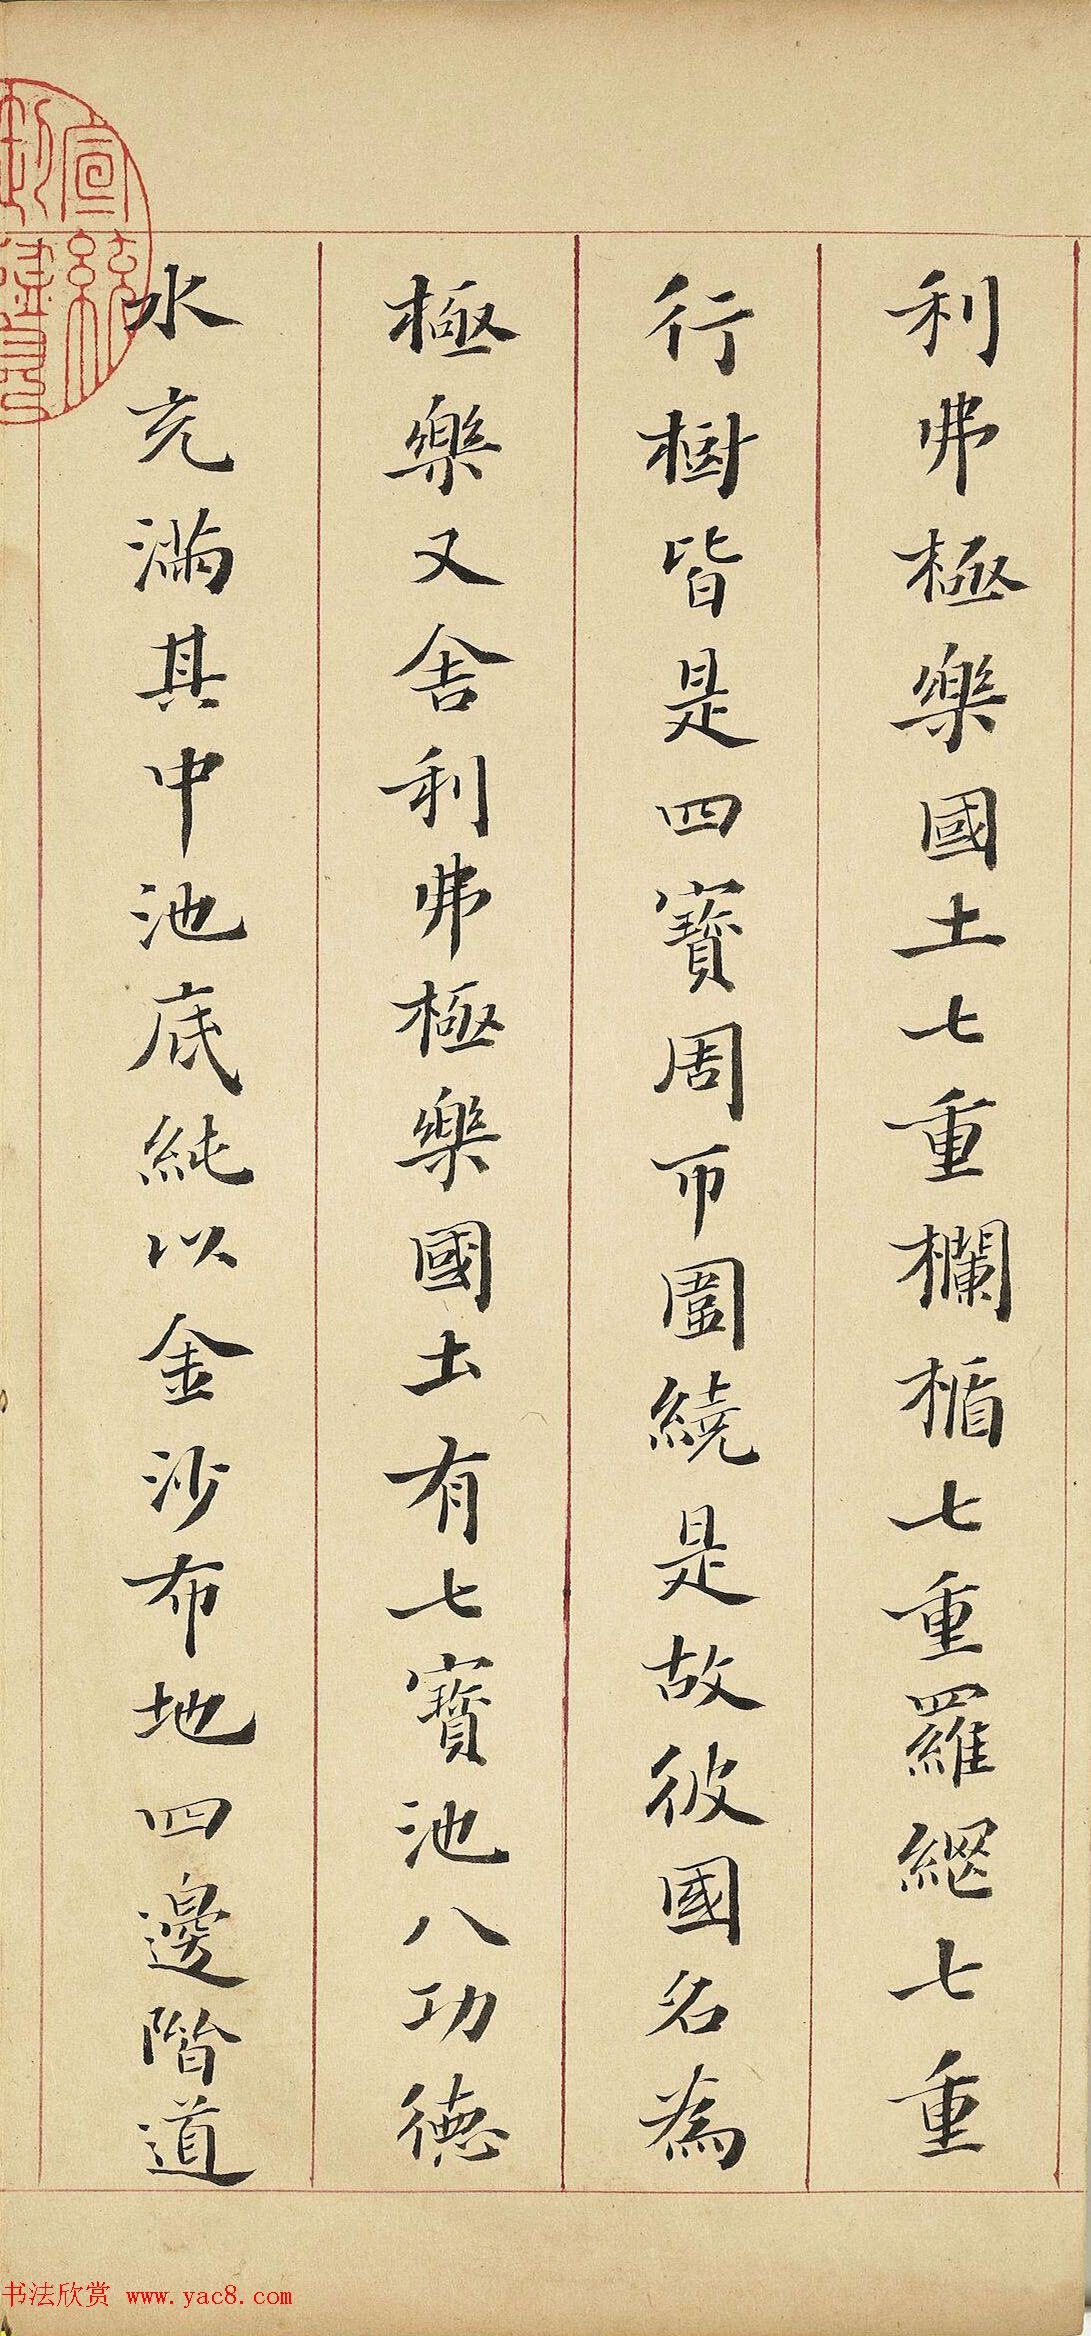 利弗極樂國土七重欄楯七重羅網七重
行樹皆是四寶周帀圍繞是故彼國名為
極樂又舎利弗極樂國土有七寶池八功德
水充滿其中池底純以金沙布地四邊階道
宣統
書法欣赏 www.yac8.com